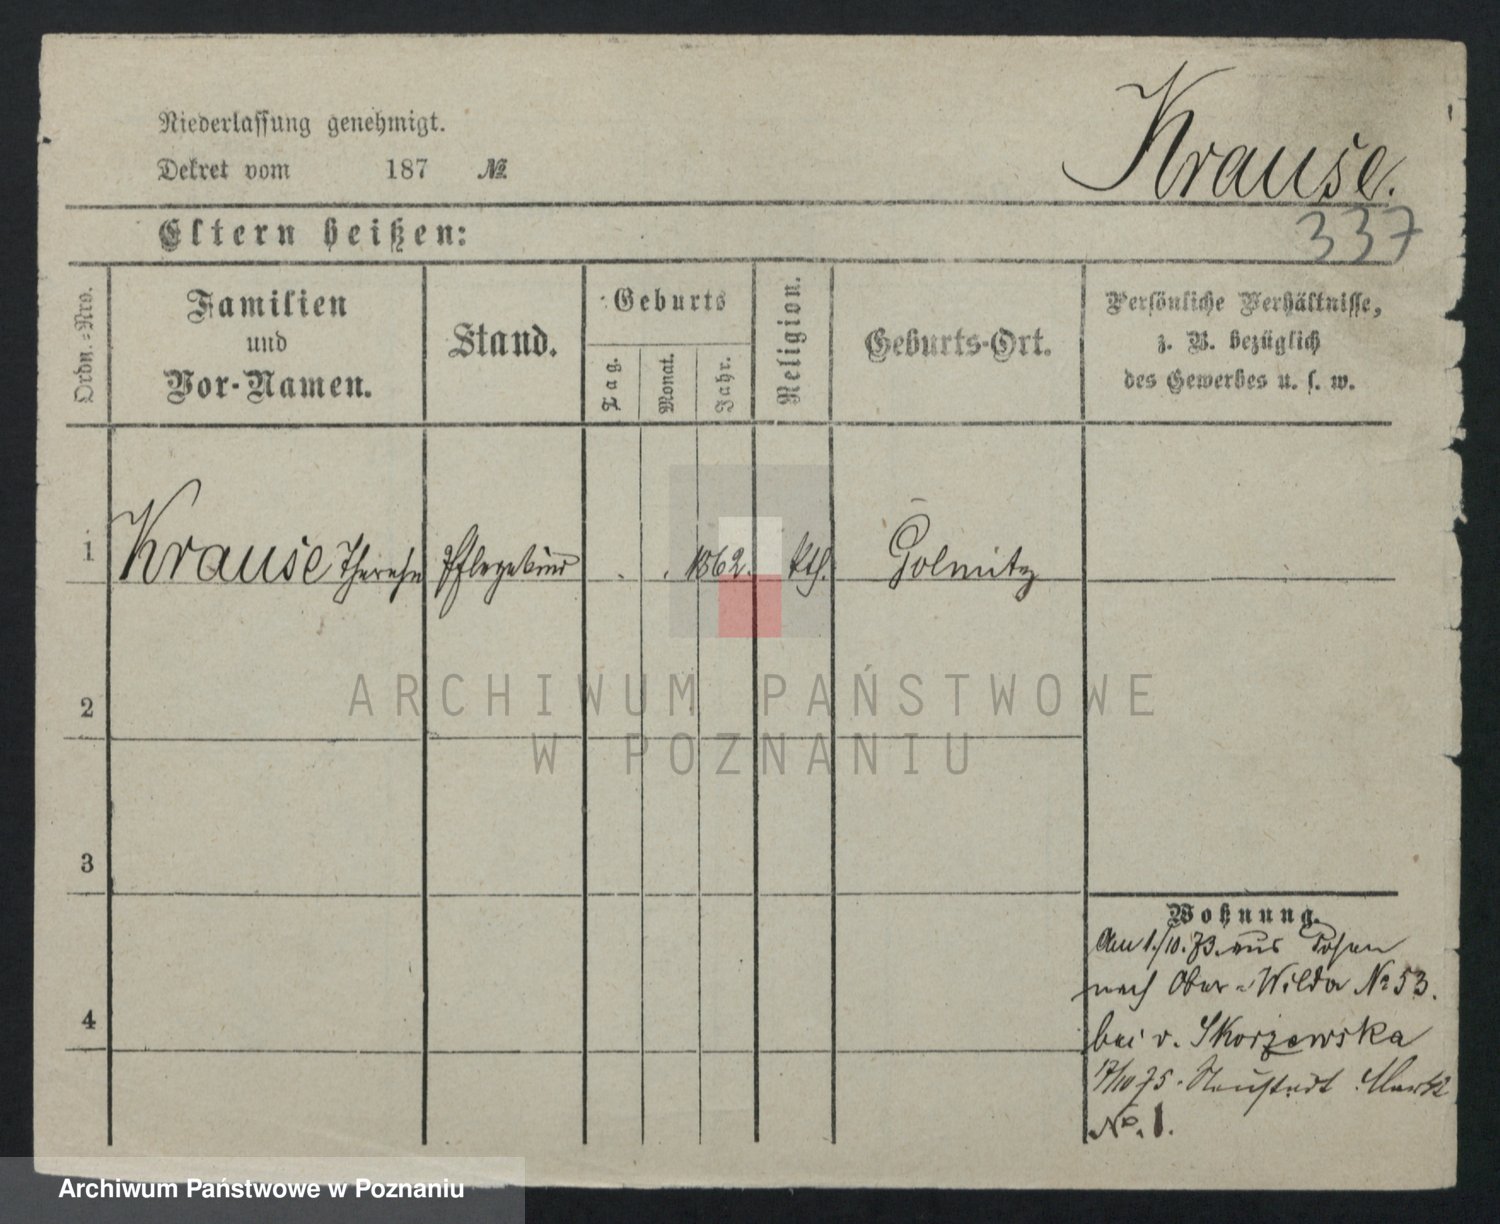 Niederlassung genehmigt.
Dekret vom 187 №
Krause.
337
Eltern heißen:
Ordn.-Nro.
Familien
und
Vor-Namen.
Stand.
Geburts
Tag.
Monat.
Jahr.
Religion.
Geburts-Ort.
Persönliche Verhältnisse,
z. B. bezüglich
des Gewerbes u. s. w.
1 Krause Therese Pflegekind . . 1862. kth. Golmitz
2
3
4
Wohnung.
Am 1./10.73. aus Posen
nach Ober-Wilda № 53.
bei v. Skorzewska
17/10 75. Neustadt. Markt
No. 1.
ARCHIWUM PAŃSTWOWE
W POZNANIU
Archiwum Państwowe w Poznaniu